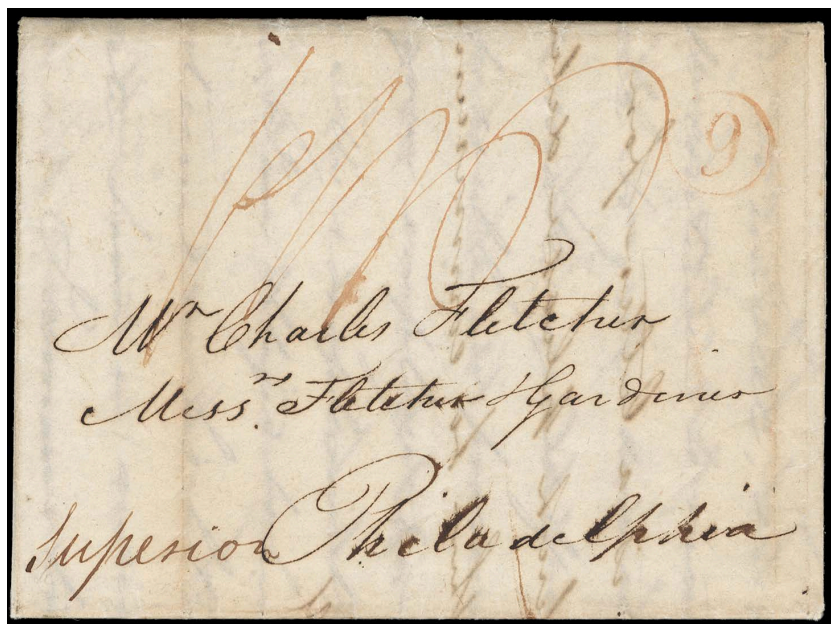 9
Mr Charles Fletcher
Messrs. Fletcher & Gardiner
Superior Philadelphia